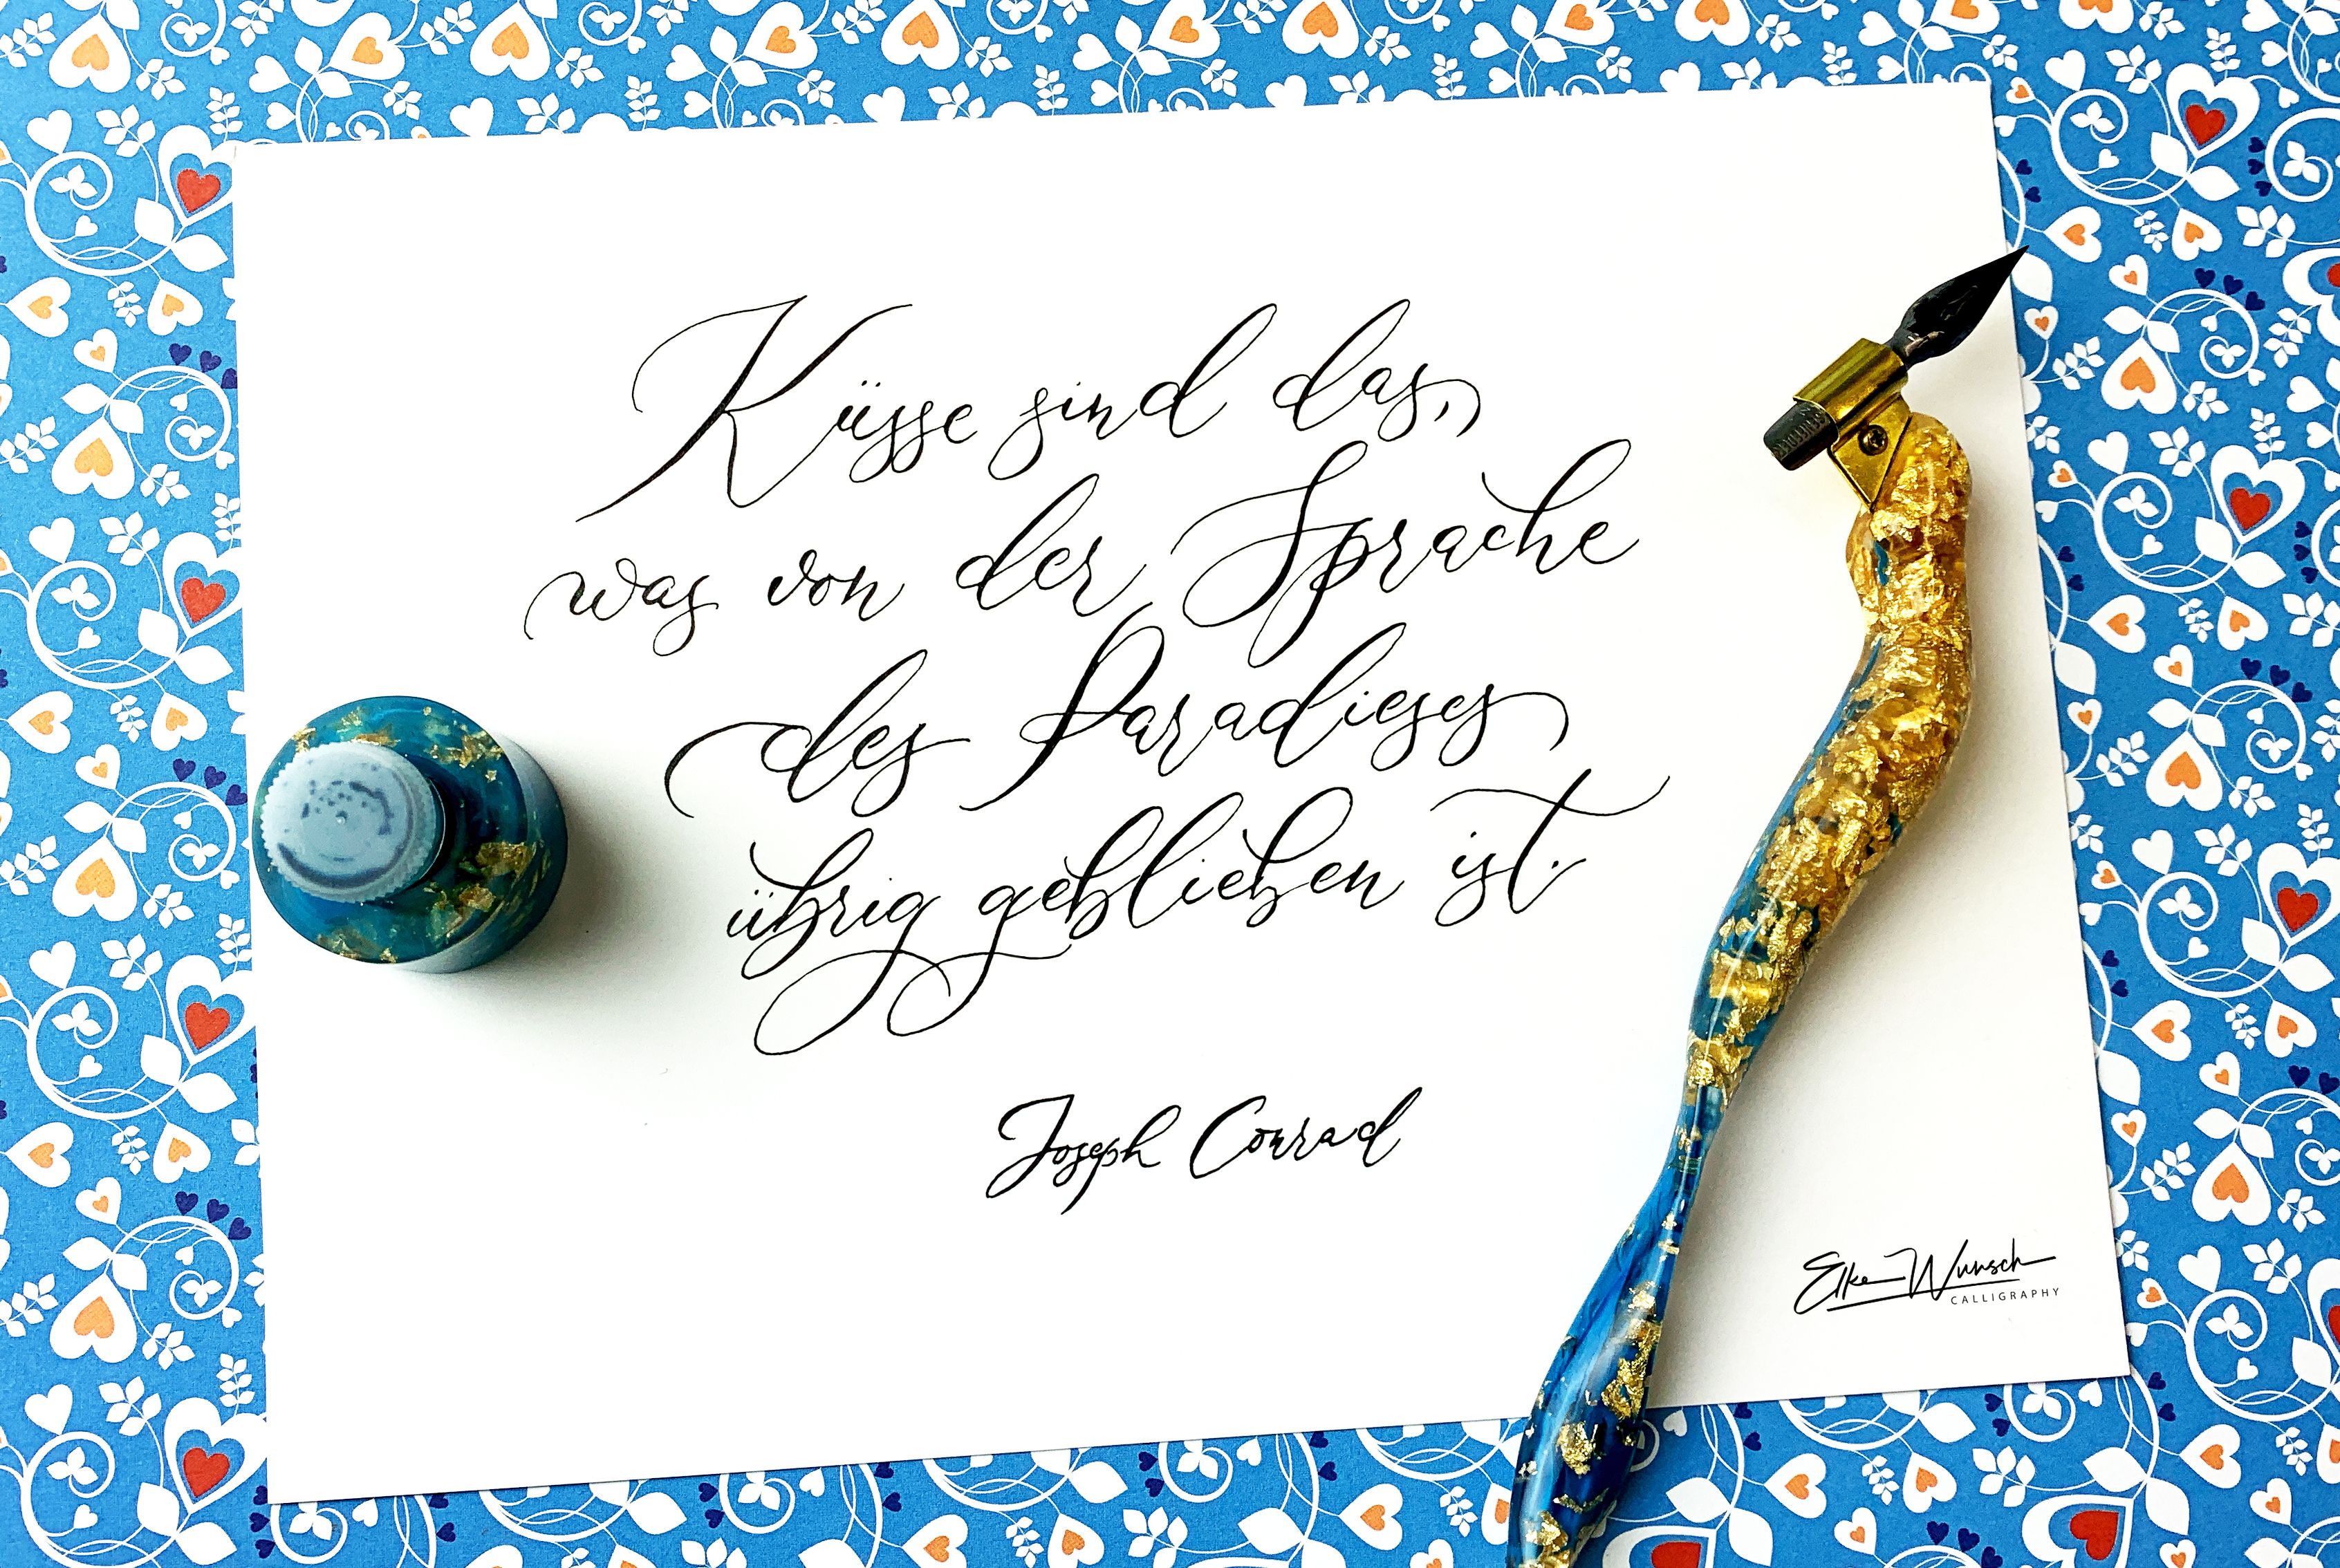 Küsse sind das,
was von der Sprache
des Paradieses
übrig geblieben ist.
Joseph Conrad
Elke Wunsch
CALLIGRAPHY